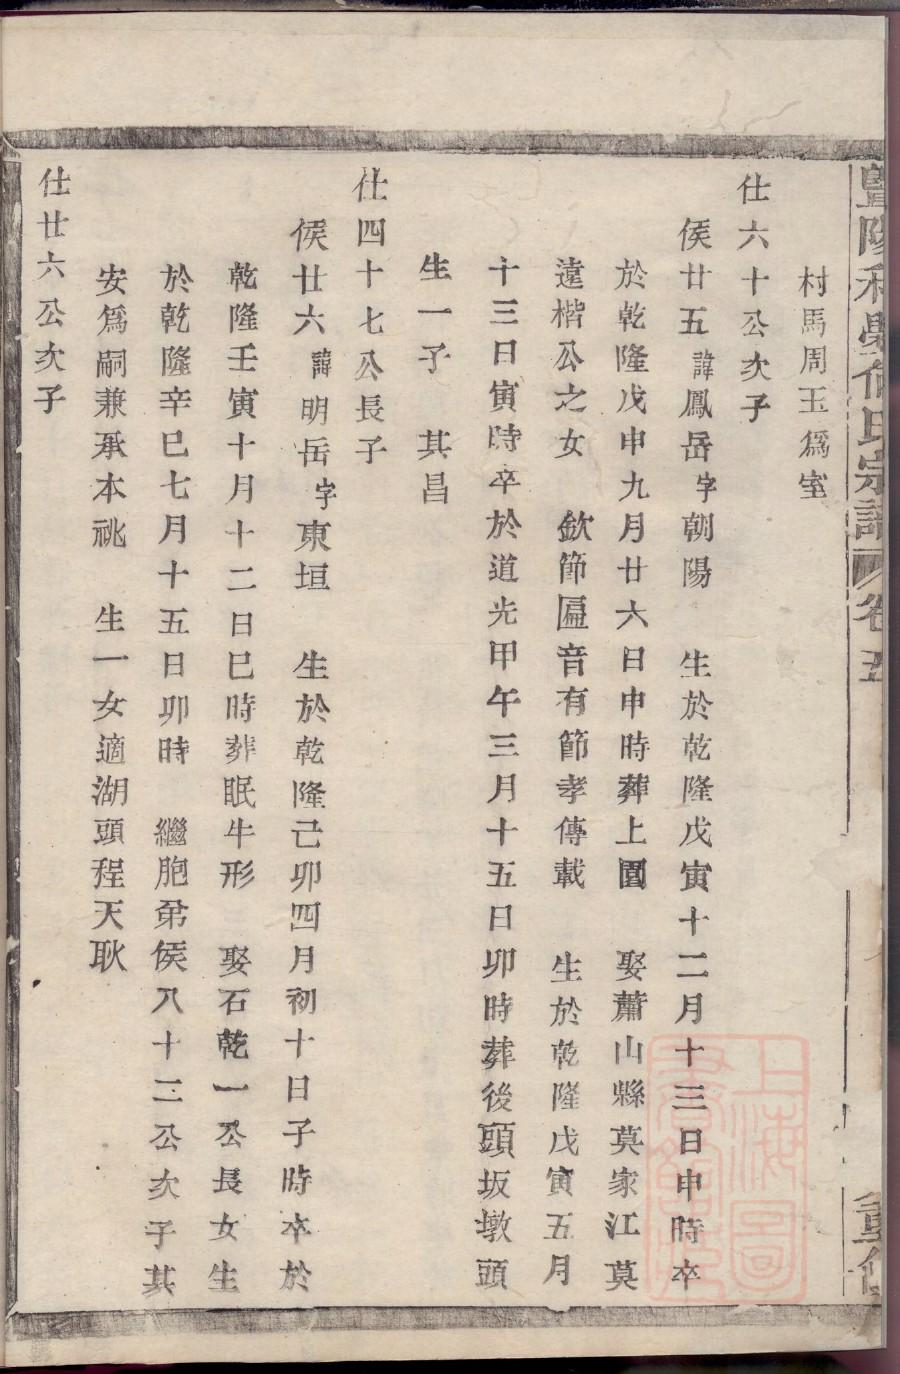 暨陽
氏宗譜
卷五
重修
村馬周玉爲室
仕六十公次子
侯廿五諱鳳岳字朝陽 生於乾隆戊寅十二月十三日申時卒
於乾隆戊申九月廿六日申時葬上園 娶蕭山縣莫家江莫
遠楷公之女 欽節匾音有節孝傳載 生於乾隆戊寅五月
十三日寅時卒於道光甲午三月十五日卯時葬後頭坂墩頭
生一子 其昌
仕四十七公長子
侯廿六諱明岳字東垣 生於乾隆己卯四月初十日子時卒於
乾隆壬寅十月十二日巳時葬眠牛形 娶石乾一公長女生
於乾隆辛巳七月十五日卯時 繼胞弟侯八十二公次子其
安爲嗣兼承本祧 生一女適湖頭程天耿
仕廿六公次子
上海圖